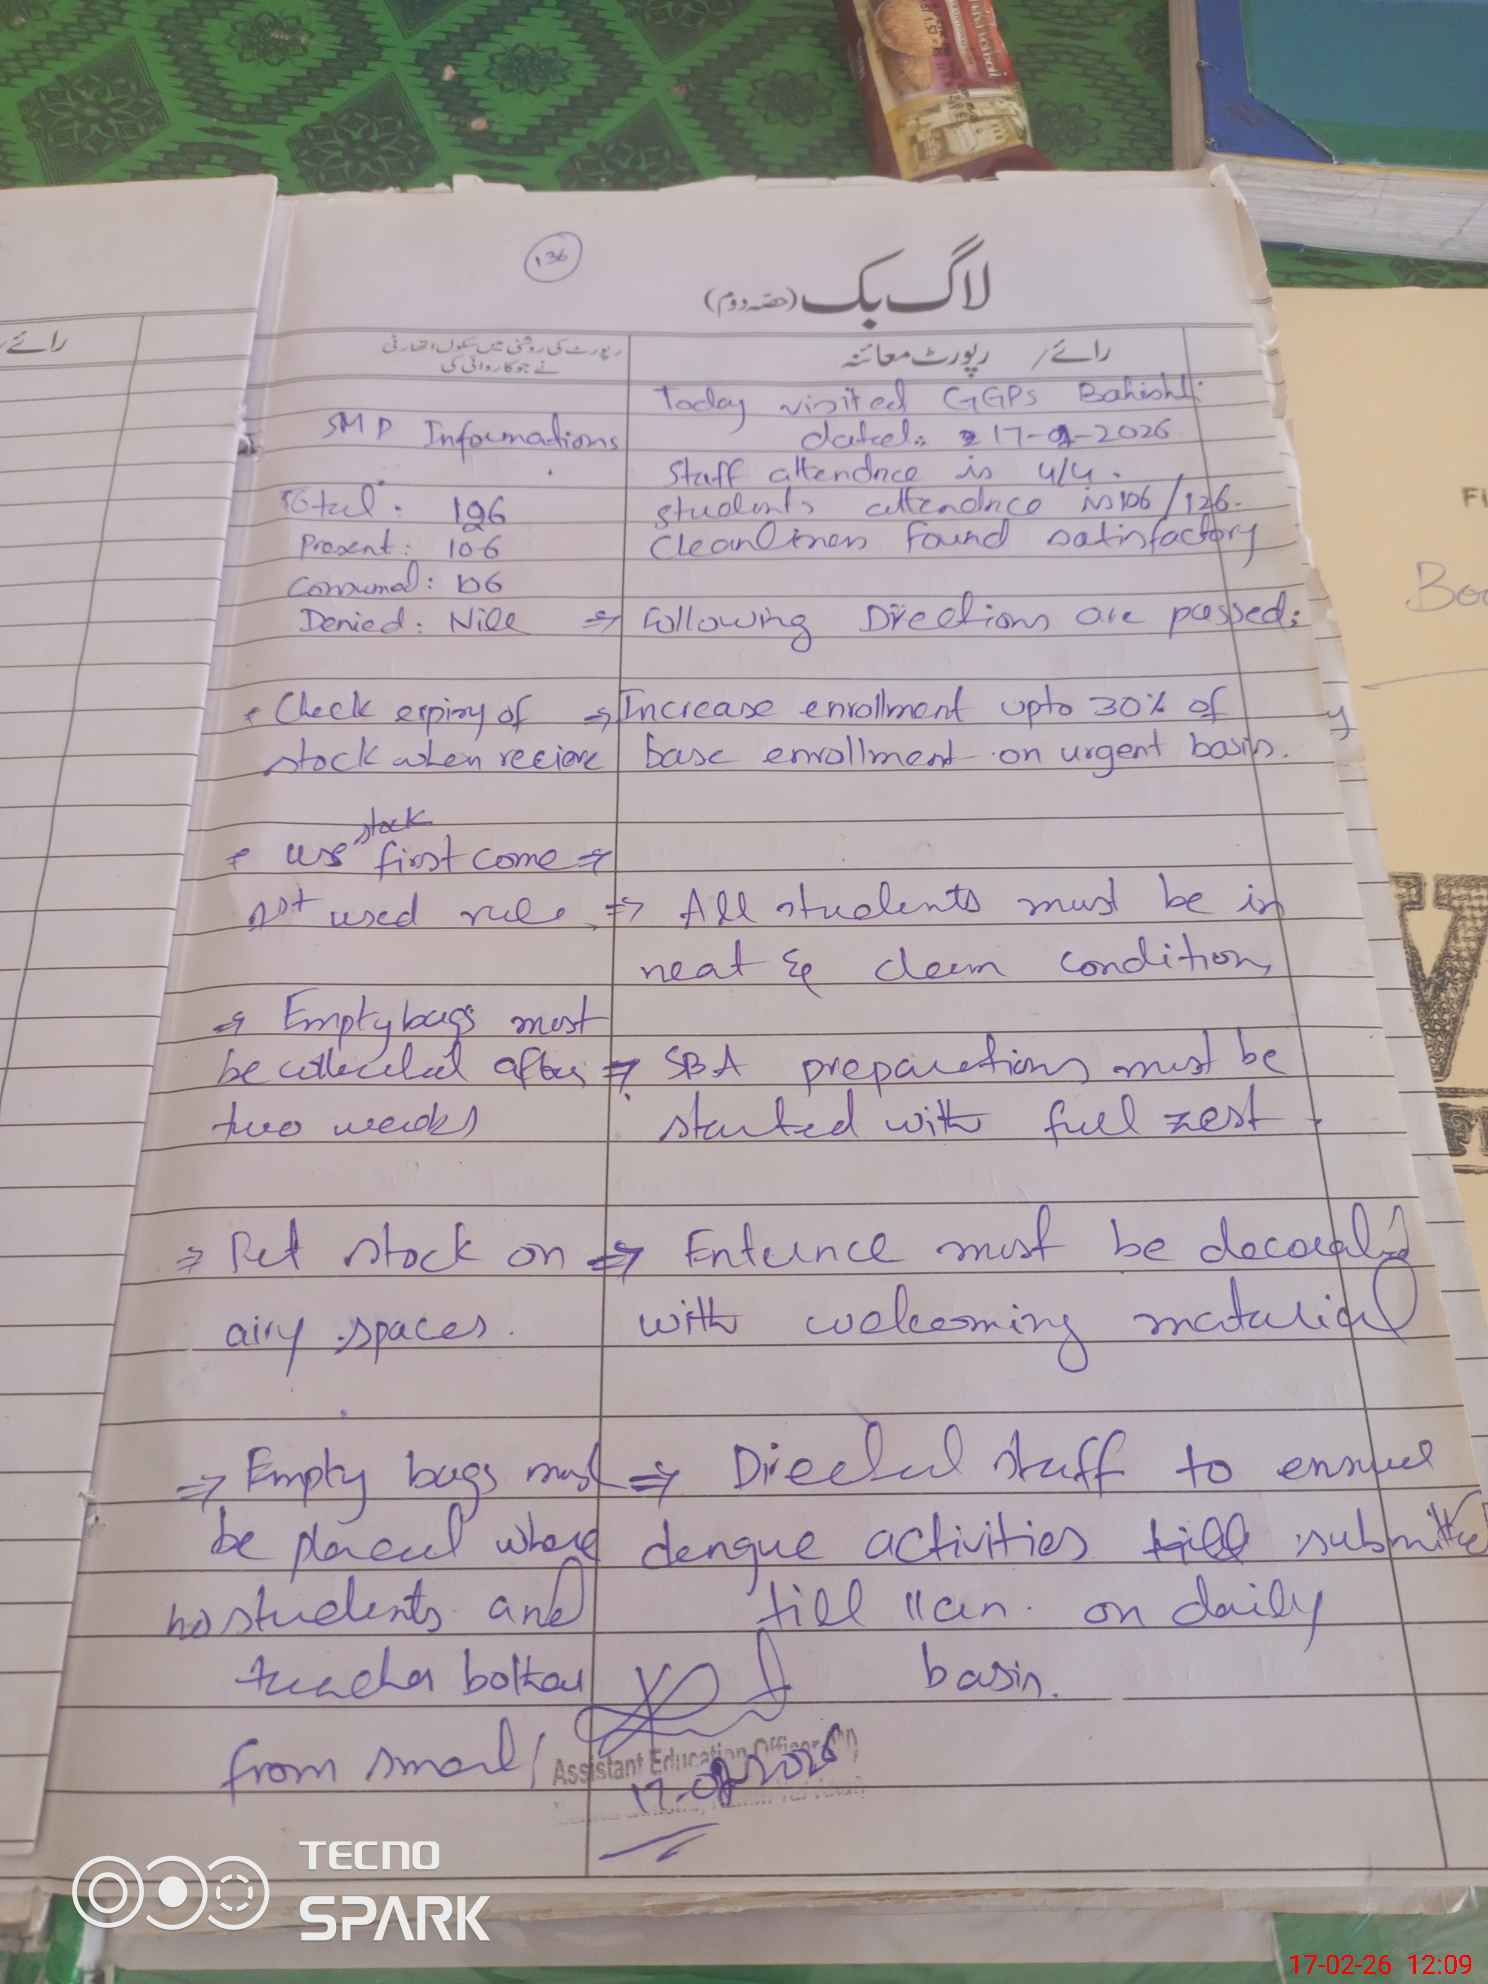 136
لاگ بک (حصہ دوم)
رائے/ رپورٹ معائنہ
رپورٹ کی روشنی میں سکول اتھارٹی
نے جو کاروائی کی
رائے
Today visited GGPS Bahishti
dated: 17-02-2026
Staff attendnce is 4/4.
students attendnce is 106/126.
Cleanliness found satisfactory
⇒ Following Directions are passed:
⇒ Increase enrollment upto 30% of
base enrollment on urgent basis.
⇒ All students must be in
neat & clean condition,
⇒ SBA preparations must be
started with full zest.
⇒ Enternce must be decorated
with welcoming matarial
⇒ Directed staff to ensure
dengue activities till submitted
till 11 am. on daily
basis.
SMP Informations
Total: 126
Present: 106
Consumed: 106
Denied: Nill
Check expiry of
stock when recieve
use stock first come
not used rule
⇒ Empty bags must
be collected after
two weeks
⇒ Put stock on
airy spaces.
⇒ Empty bags must
be placed where
no students and
teacher bother
from smell
Assistant Education Officer
17-02-2026
TECNO
SPARK
17-02-26 12:09